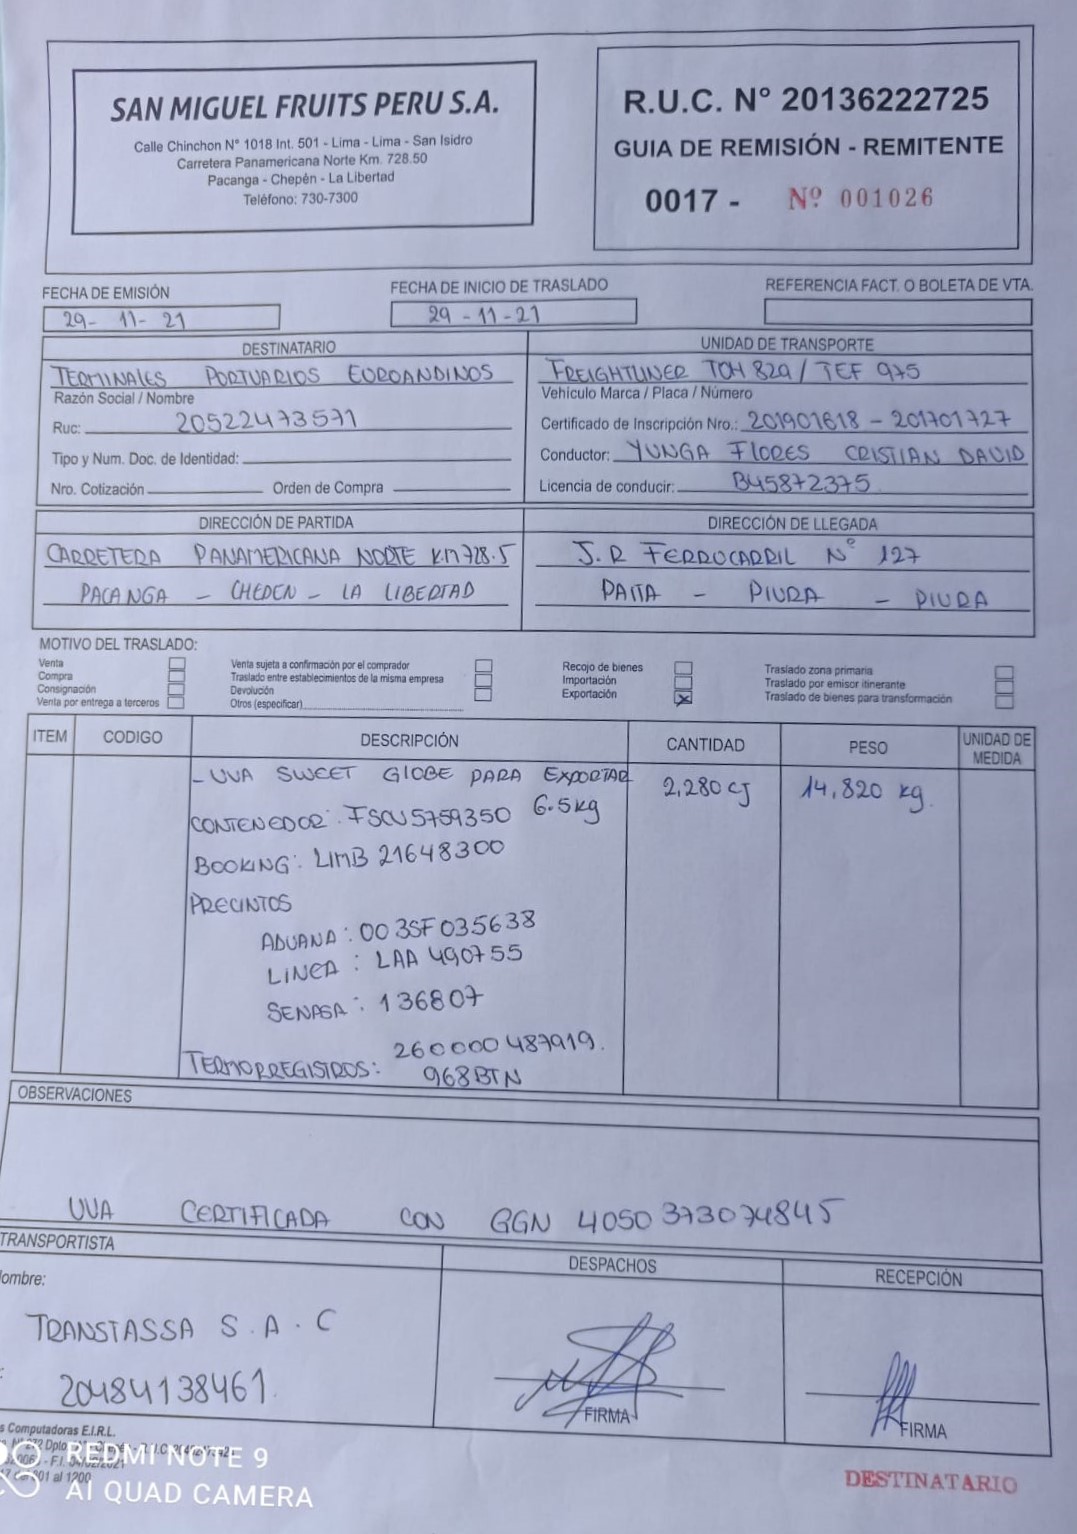 SAN MIGUEL FRUITS PERU S.A.
Calle Chinchon N° 1018 Int. 501 - Lima - Lima - San Isidro
Carretera Panamericana Norte Km. 728.50
Pacanga - Chepén - La Libertad
Teléfono: 730-7300
R.U.C. N° 20136222725
GUIA DE REMISIÓN - REMITENTE
0017 - Nº 001026
FECHA DE EMISIÓN
29- 11- 21
FECHA DE INICIO DE TRASLADO
29 -11-21
REFERENCIA FACT. O BOLETA DE VTA.
DESTINATARIO
TERMINALES PORTUARIOS EUROANDINOS
Razón Social / Nombre
Ruc: 20522473571
Tipo y Num. Doc. de Identidad:
Nro. Cotización Orden de Compra
UNIDAD DE TRANSPORTE
FREIGHTLINER TCH 829 / TEF 975
Vehículo Marca / Placa / Número
Certificado de Inscripción Nro.: 201901618 - 201701727
Conductor: YUNGA FLORES CRISTIAN DAVID
Licencia de conducir: B45872375
DIRECCIÓN DE PARTIDA
CARRETERA PANAMERICANA NORTE KM 728.5
PACANGA - CHEPEN - LA LIBERTAD
DIRECCIÓN DE LLEGADA
J.R FERROCARRIL N° 127
PAITA - PIURA - PIURA
MOTIVO DEL TRASLADO:
Venta
Compra
Consignación
Venta por entrega a terceros
Venta sujeta a confirmación por el comprador
Traslado entre establecimientos de la misma empresa
Devolución
Otros (especificar)
Recojo de bienes
Importación
Exportación X
Traslado zona primaria
Traslado por emisor itinerante
Traslado de bienes para transformación
ITEM CODIGO DESCRIPCIÓN CANTIDAD PESO UNIDAD DE MEDIDA
- UVA SWEET GLOBE PARA EXPORTAR 2,280 cj 14,820 kg.
6.5kg
CONTENEDOR: FSCU5759350
BOOKING: LIMB 21648300
PRECINTOS
ADUANA: 003SF035638
LINEA: LAA 490755
SENASA: 136807
TERMORREGISTROS: 260000487919.
968BTN
OBSERVACIONES
UVA CERTIFICADA CON GGN 4050373074845
TRANSPORTISTA
ombre:
TRANSTASSA S.A.C
20484138461
DESPACHOS
FIRMA
RECEPCIÓN
FIRMA
s Computadoras E.I.R.L.
01 al 1200
REDMI NOTE 9
AI QUAD CAMERA
DESTINATARIO